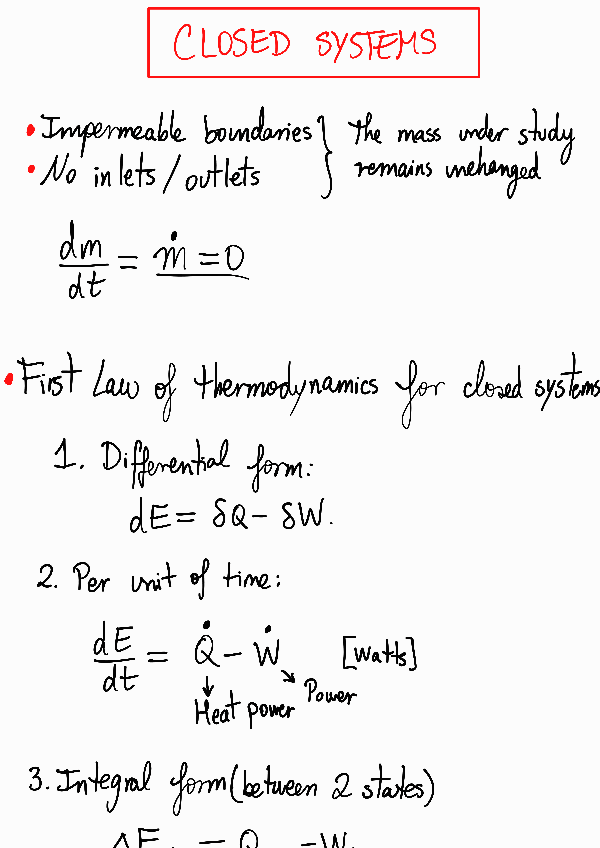 CLOSED SYSTEMS
• Impermeable boundaries } The mass under study
• No inlets / outlets } remains unchanged
dm/dt = ṁ = 0
• First Law of thermodynamics for closed systems
1. Differential form:
dE = δQ - δW.
2. Per unit of time:
dE/dt = Q̇ - Ẇ [Watts]
↓ Heat power ↘ Power
3. Integral form (between 2 states)
ΔE = Q - W